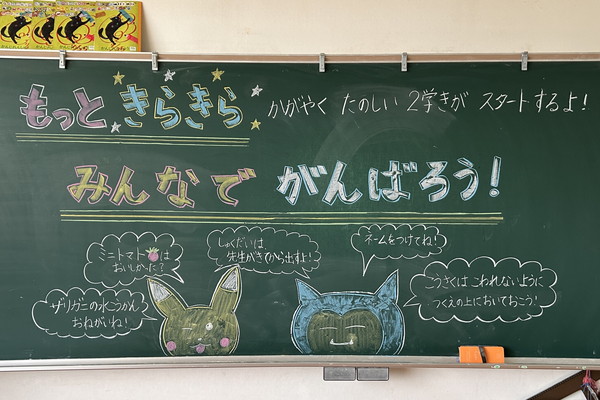 もっと きらきら かがやく たのしい 2学きが スタートするよ!
みんなで がんばろう!
ミニトマトは
おいしかった?
しゅくだいは
先生がきてから出すよ!
ネームをつけてね!
ザリガニの水こうかん
おねがいね!
こうさくは こわれないように
つくえの上においておこう!